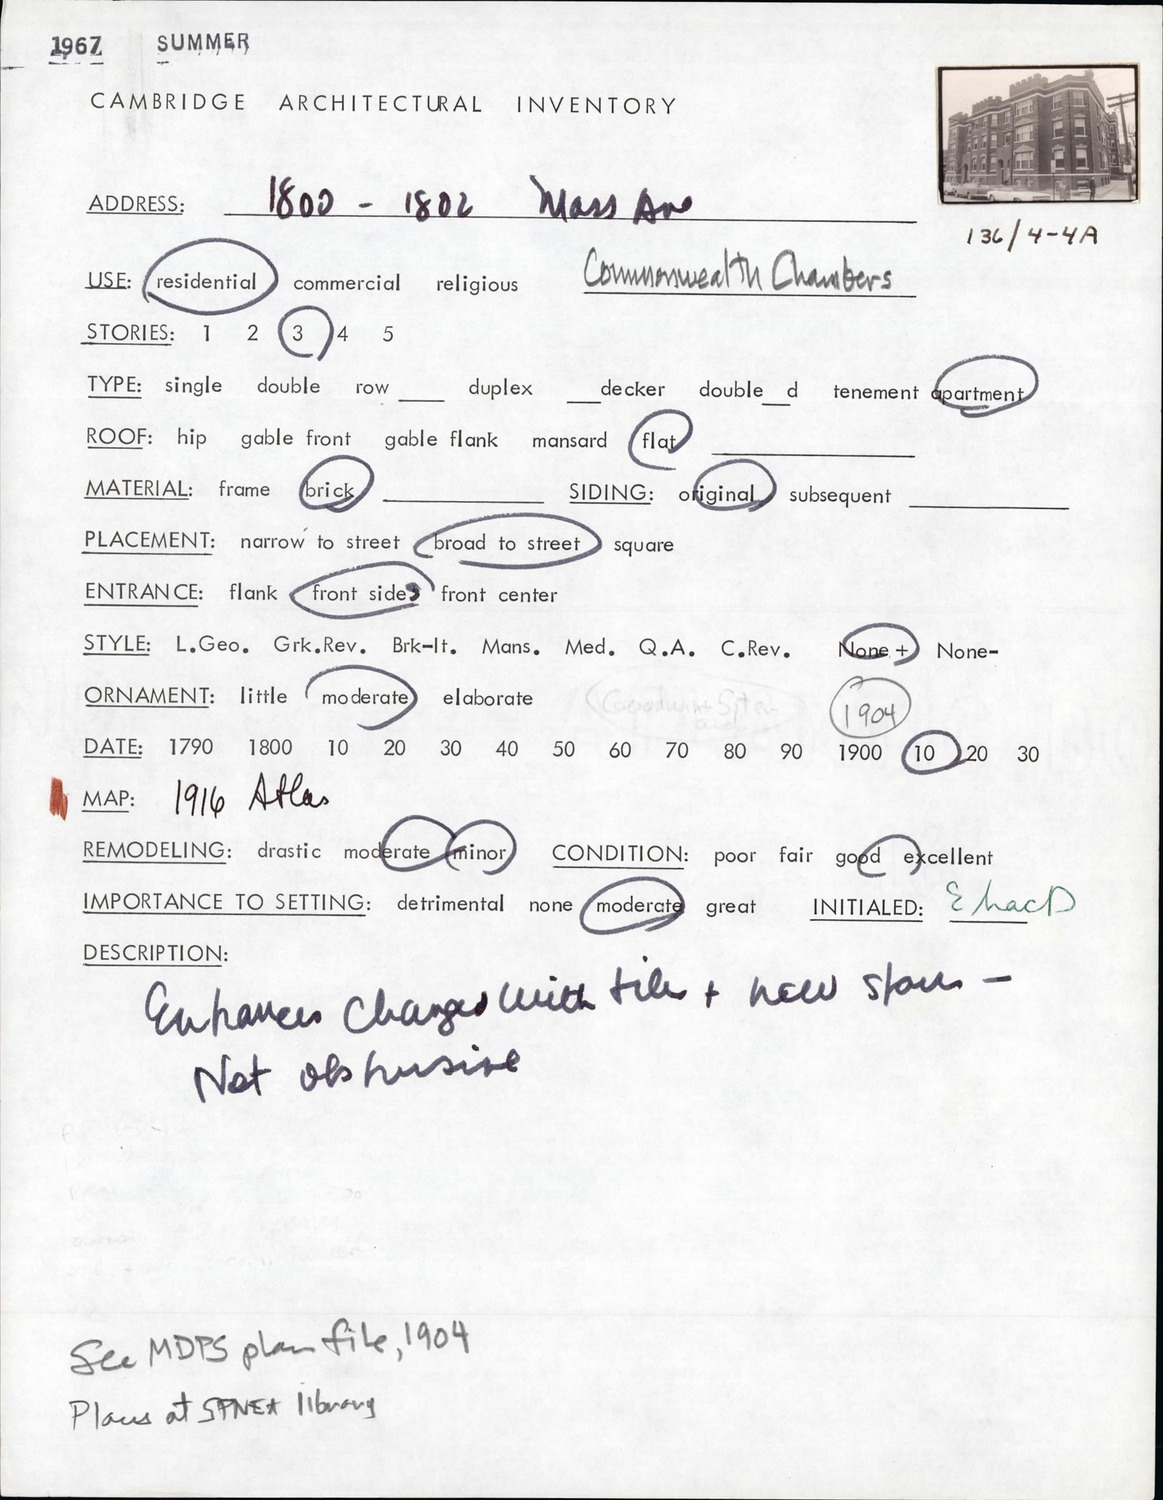 1967 SUMMER
CAMBRIDGE ARCHITECTURAL INVENTORY
ADDRESS: 1800 - 1802 Mass Ave
136/4-4A
USE: residential commercial religious Commonwealth Chambers
STORIES: 1 2 3 4 5
TYPE: single double row ___ duplex ___decker double__d tenement apartment
ROOF: hip gable front gable flank mansard flat
MATERIAL: frame brick SIDING: original subsequent
PLACEMENT: narrow to street broad to street square
ENTRANCE: flank front sides front center
STYLE: L.Geo. Grk.Rev. Brk-It. Mans. Med. Q.A. C.Rev. None + None-
ORNAMENT: little moderate elaborate 1904
DATE: 1790 1800 10 20 30 40 50 60 70 80 90 1900 10 20 30
MAP: 1916 Atlas
REMODELING: drastic moderate minor CONDITION: poor fair good excellent
IMPORTANCE TO SETTING: detrimental none moderate great INITIALED: EMacD
DESCRIPTION:
Entrances changed with tile + new stairs -
Not obstrusive
See MDPS plan file, 1904
Plans at SPNEA library